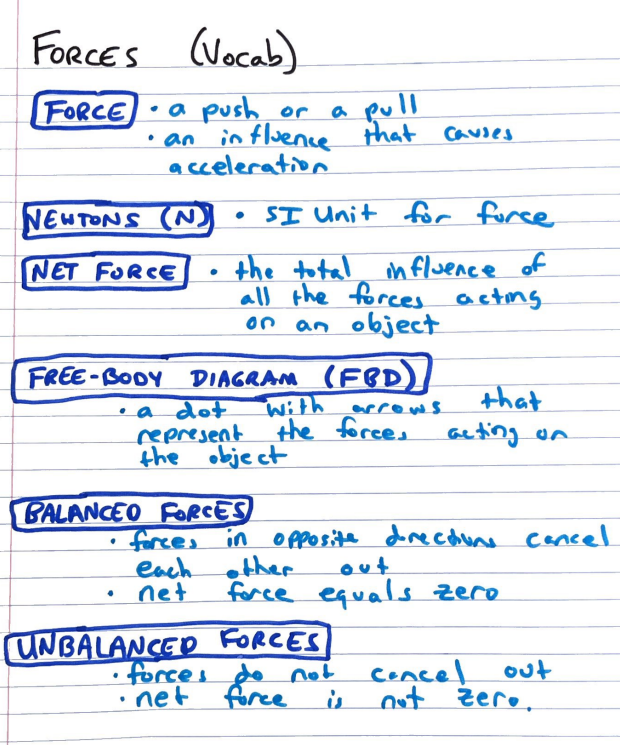 FORCES (Vocab)
FORCE • a push or a pull
• an influence that causes
acceleration
NEWTONS (N) • SI Unit for force
NET FORCE • the total influence of
all the forces acting
on an object
FREE-BODY DIAGRAM (FBD)
• a dot with arrows that
represent the forces acting on
the object
BALANCED FORCES
• forces in opposite directions cancel
each other out
• net force equals zero
UNBALANCED FORCES
• forces do not cancel out
• net force is not zero.